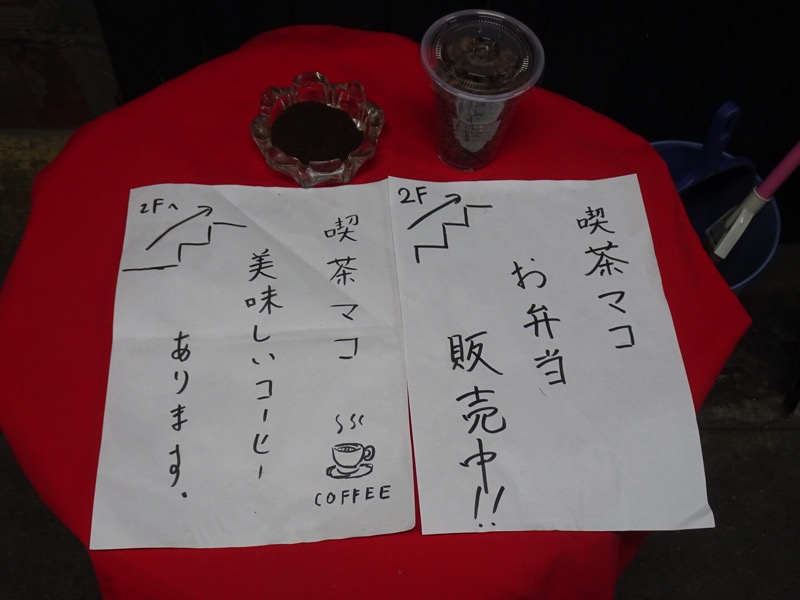 2Fへ
喫茶マコ
美味しいコーヒー
あります.
COFFEE
2F
喫茶マコ
お弁当
販売中!!